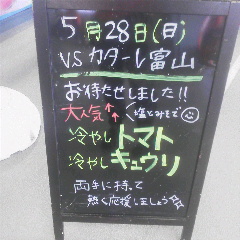 5月28日(日)
VSカターレ富山
お待たせしました!!
大人気↑塩とみそで☺
冷やしトマト
冷やしキュウリ
両手に持って
熱く応援しましょう